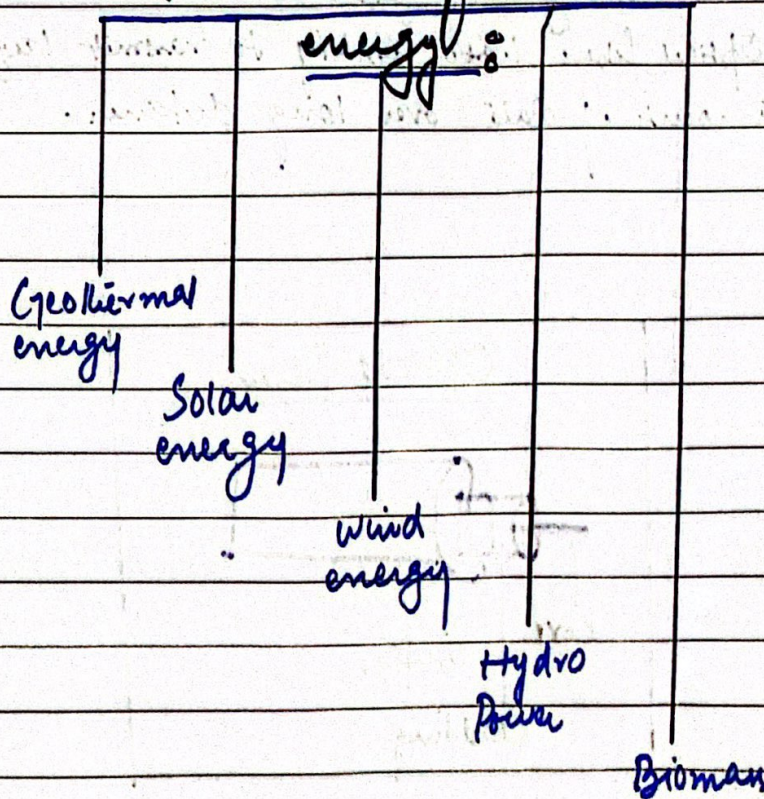 energy :
Geothermal
energy
Solar
energy
Wind
energy
Hydro
Power
Biomass